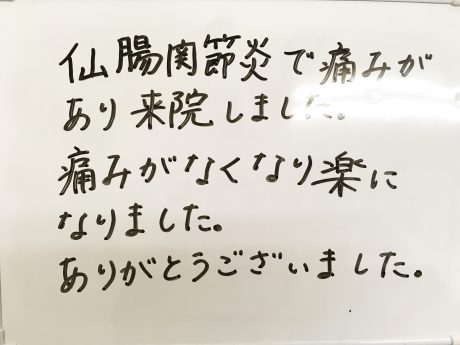 仙腸関節炎で痛みが
あり来院しました。
痛みがなくなり楽に
なりました。
ありがとうございました。